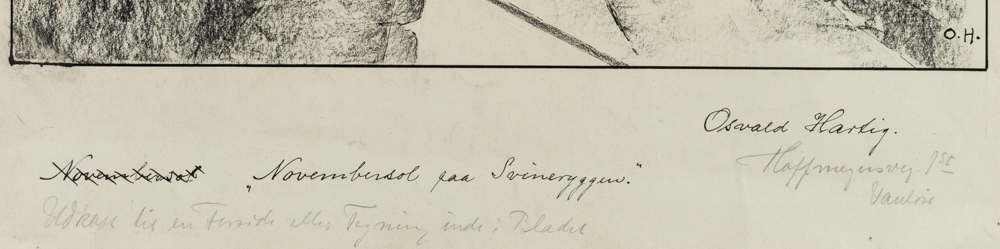 O.H.
Osvald Hartig.
Novembersol „Novembersol paa Svineryggen."
Hoffmeyersvej 1st
Udkast til en Forside eller Tegning inde i Bladet